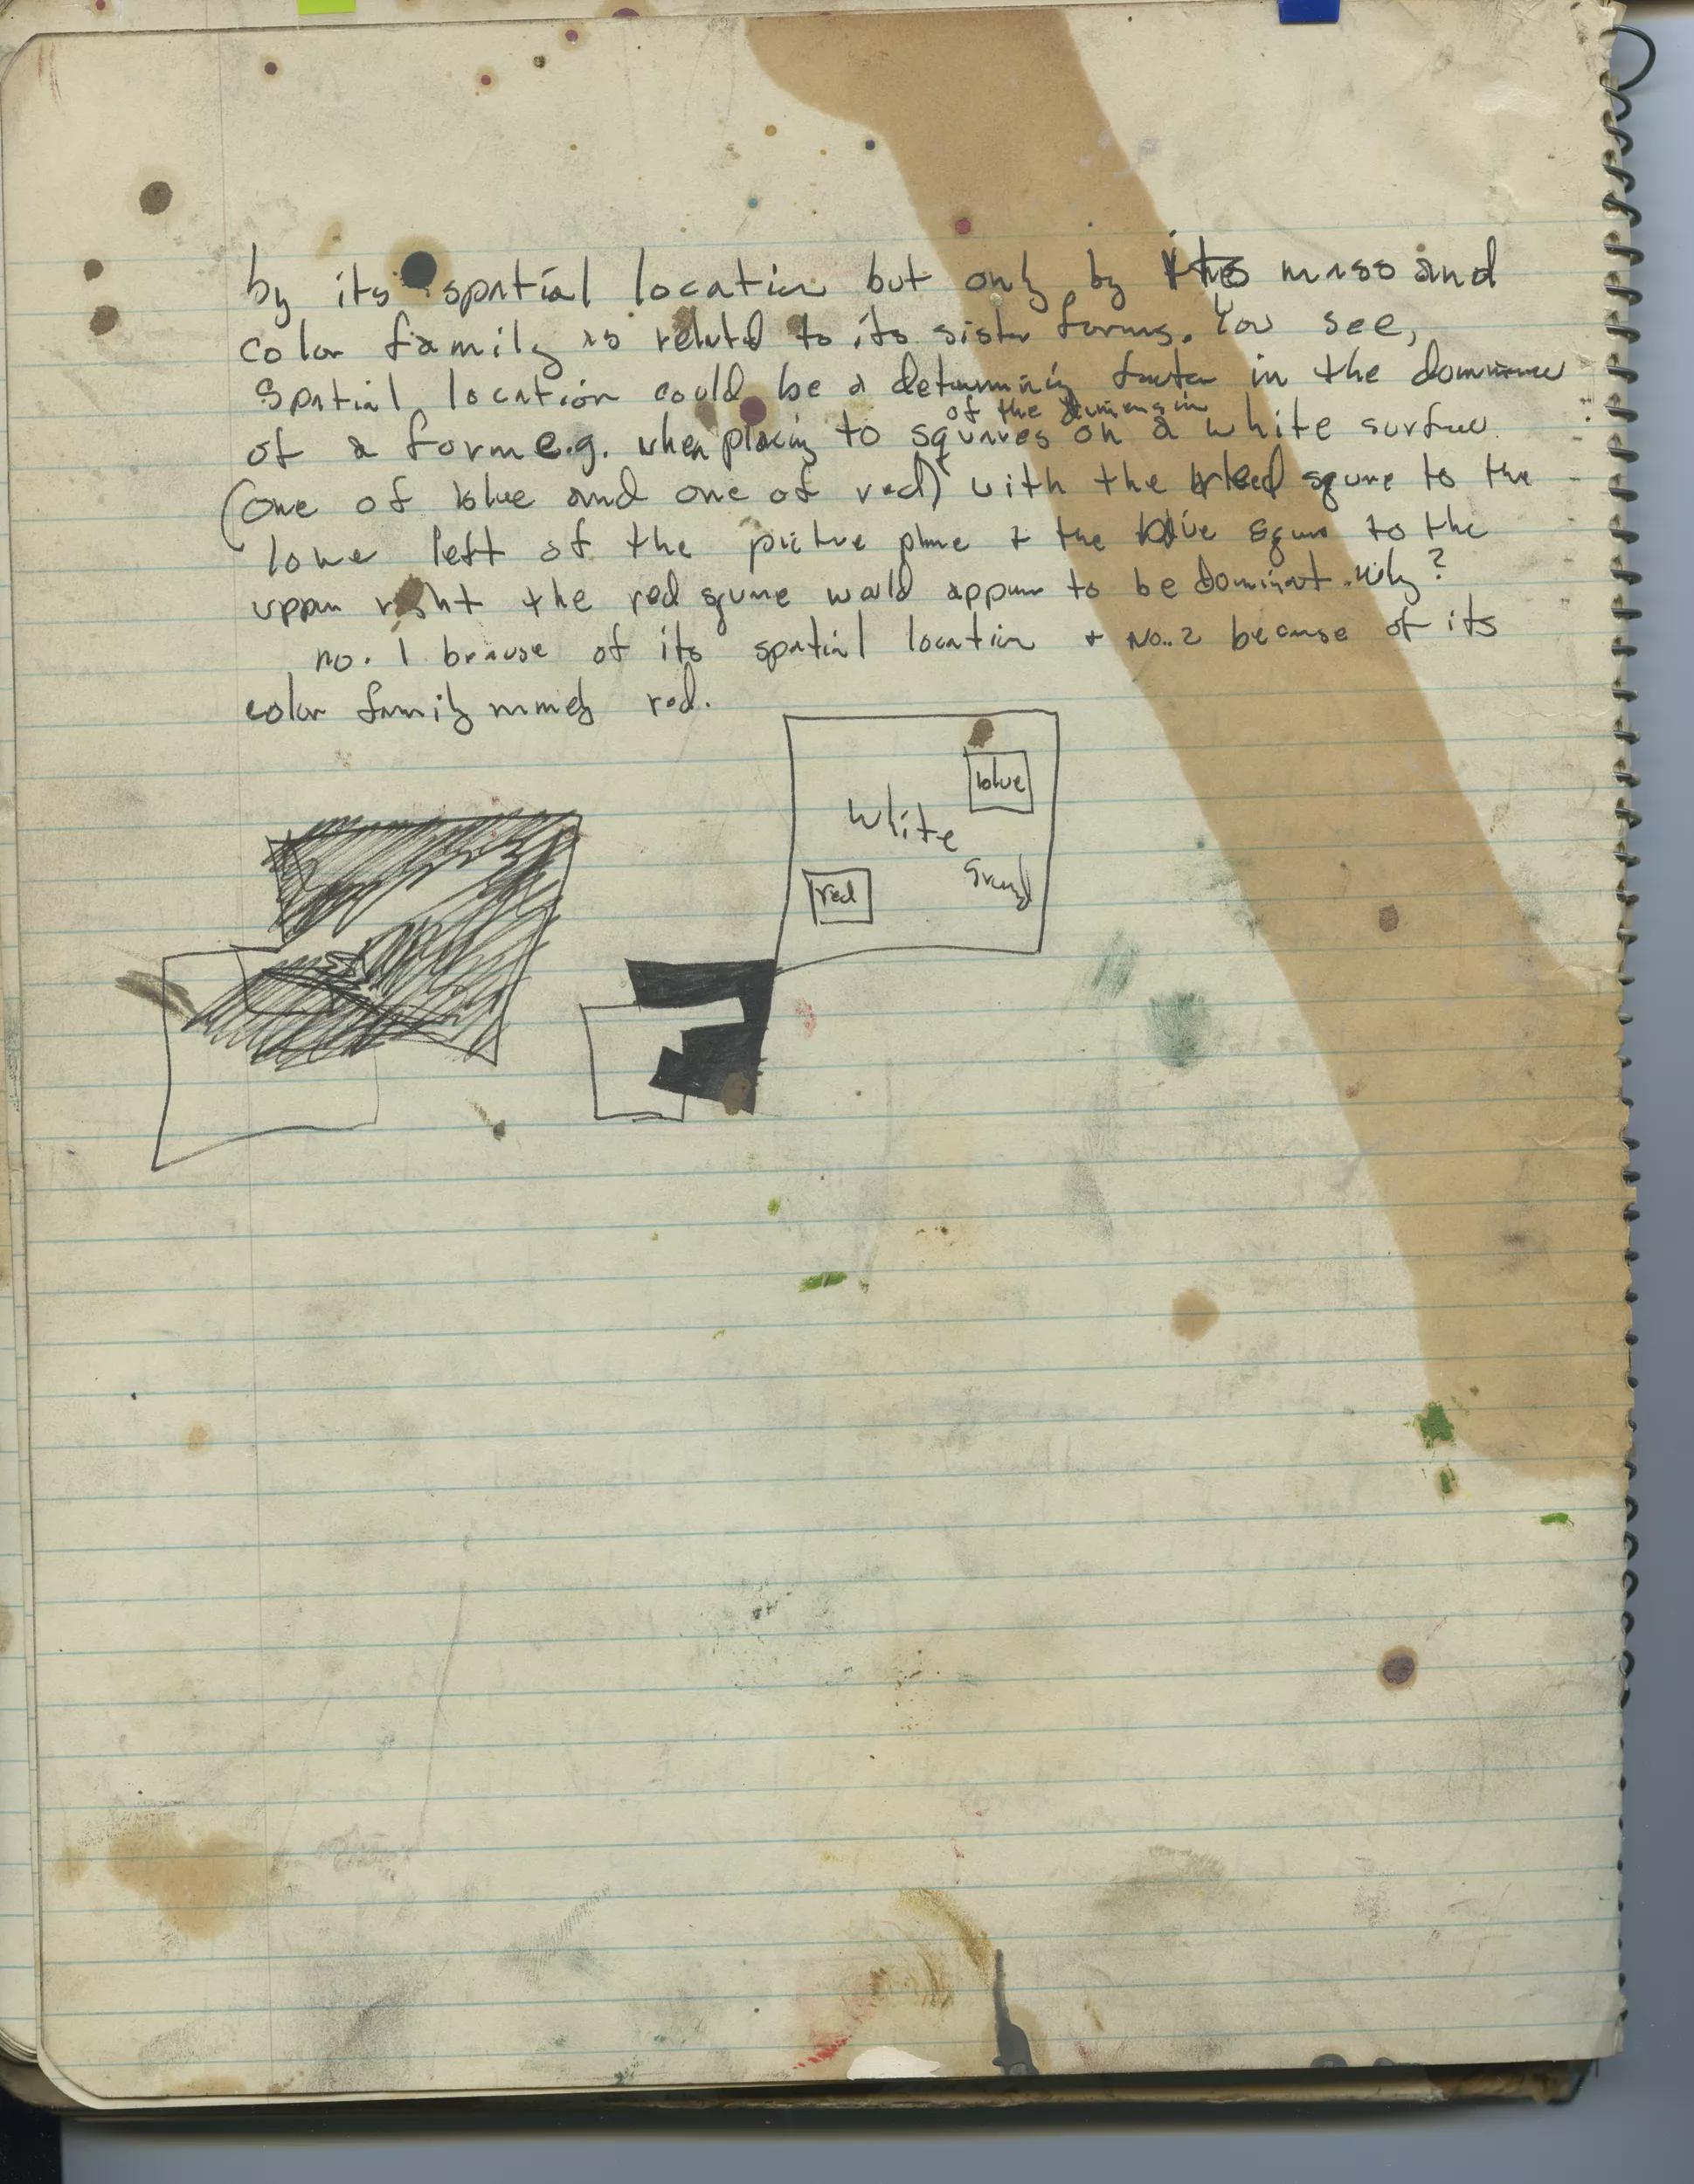 by its spatial location but only by its mass and
color family as related to its sister forms. You see,
Spatial location could be a determining factor in the dominance
of a form e.g. when placing to squares of the dimension on a white surface
(one of blue and one of red) with the red square to the
lower left of the picture plane + the blue square to the
upper right the red square would appear to be dominant. Why?
no. 1 because of its spatial location + No. 2 because of its
color family namely red.
blue
white
ground
red